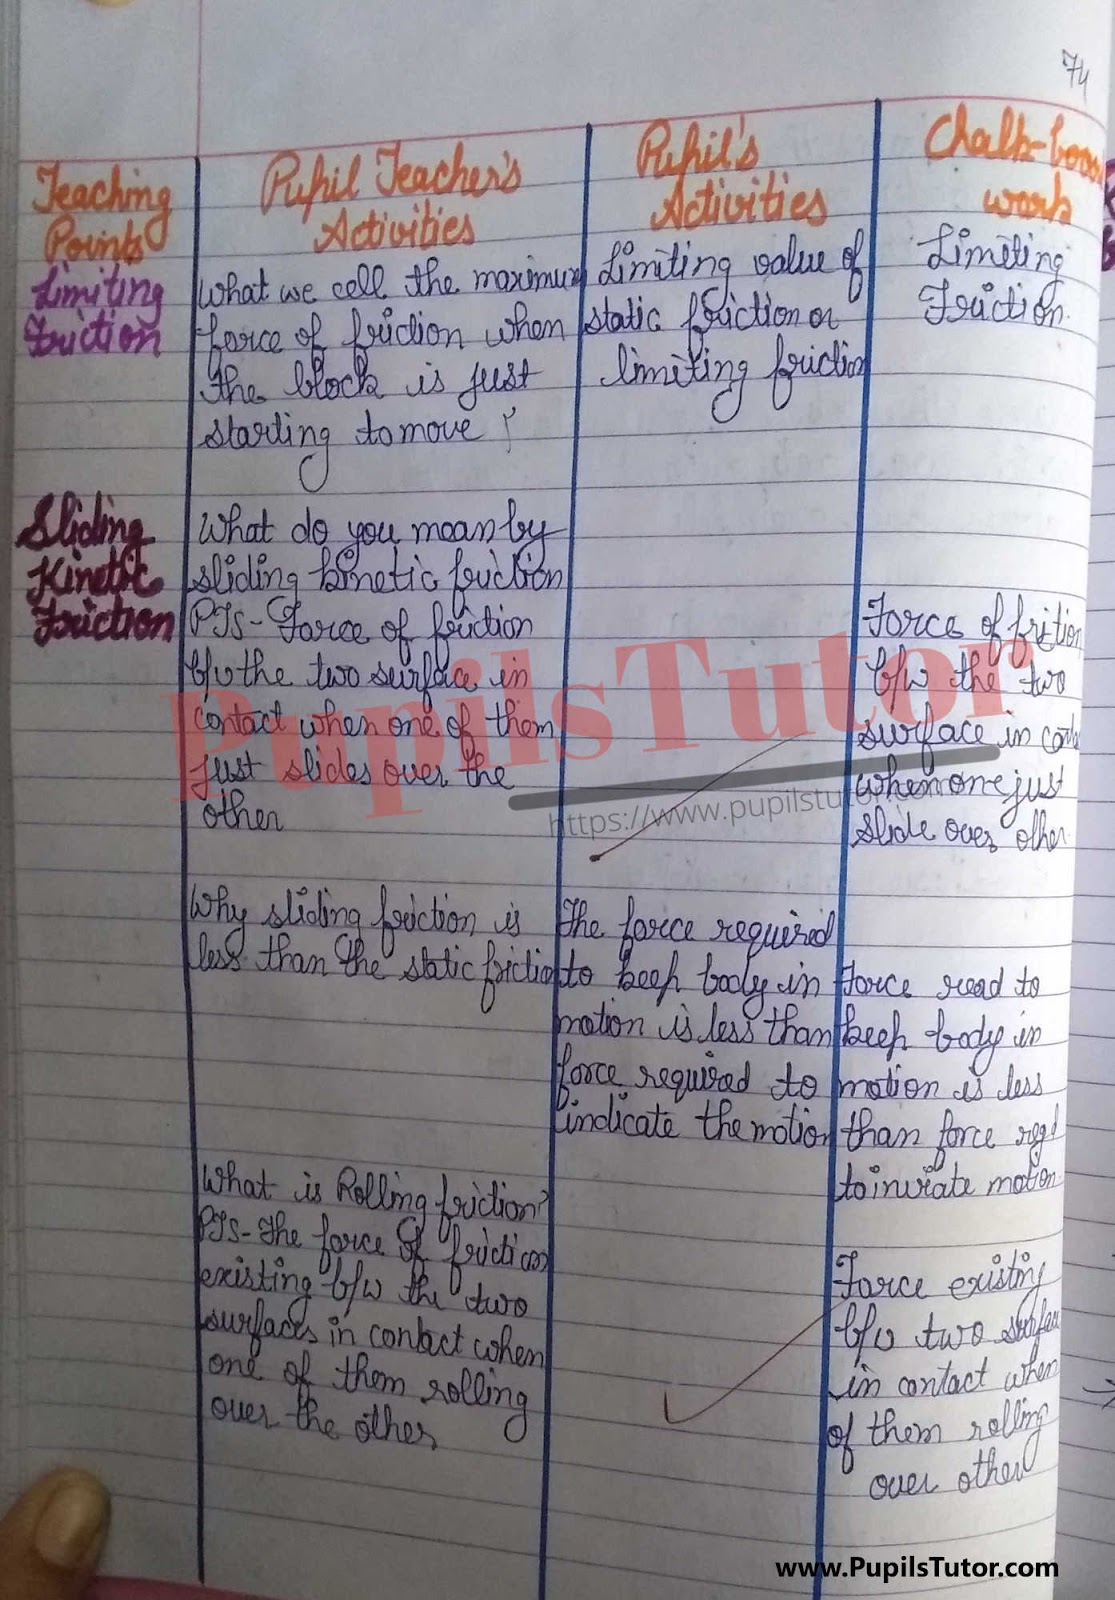 74
Teaching
Points
Pupil Teacher's
Activities
Pupil's
Activities
Chalk-boar
work
Limiting
Friction
What we cell the maximum
force of friction when
the block is just
starting to move ?
Limiting value of
static friction or
limiting friction
Limiting
Friction.
Sliding
Kinetic
Friction
What do you mean by
sliding kinetic friction
PTs- Force of friction
b/w the two surface in
contact when one of them
just slides over the
other
Force of frition
b/w the two
surface in conta
when one just
slide over other.
Why sliding friction is
less than the static friction
The force required
to keep body in
motion is less than
force required to
indicate the motion
Force read to
keep body in
motion is less
than force reqd
to inirate motion
What is Rolling friction?
PTs- The force of friction
existing b/w the two
surfaces in contact when
one of them rolling
over the other
Force existing
b/w two surface
in contact when
of them rolling
over other
PupilsTutor
https://www.pupilstutor.com
www.PupilsTutor.com